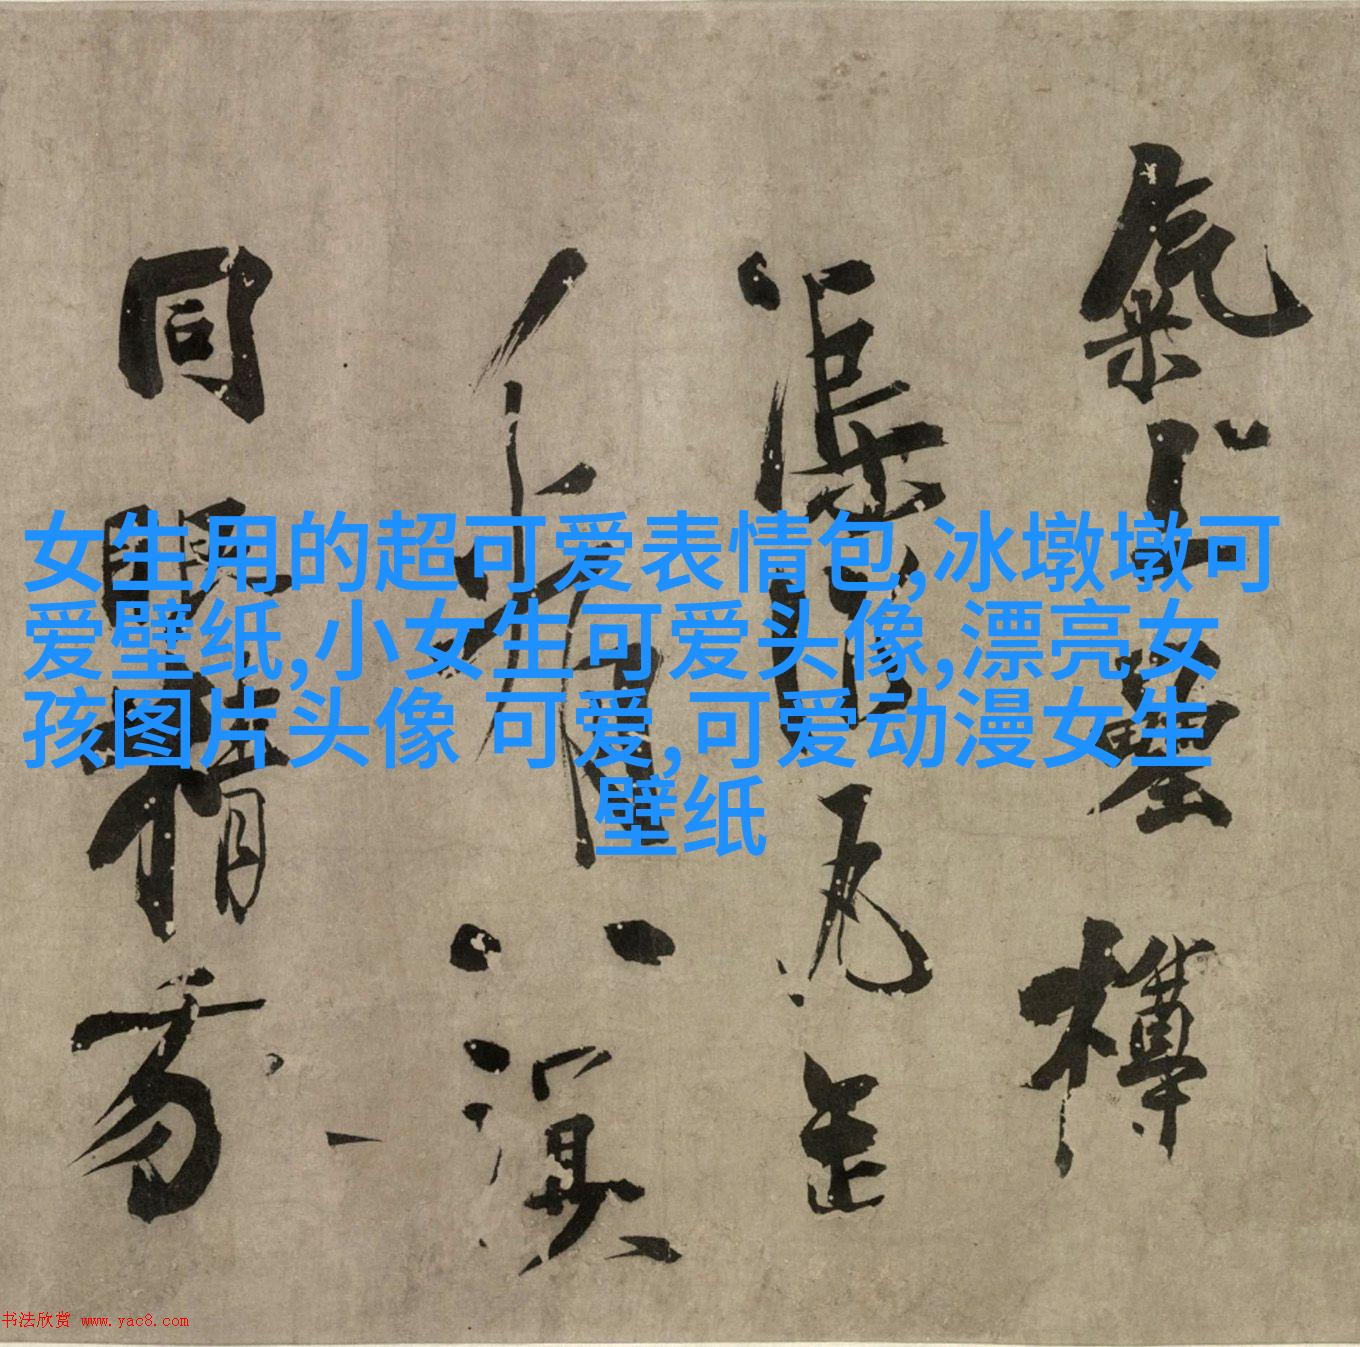 女生用的超可爱表情包,冰墩墩可
爱壁纸,小女生可爱头像,漂亮女
孩图片头像 可爱,可爱动漫女生
壁纸
氣上樽
渠瓦缶
八溟
同
书法欣赏 www.yac8.com